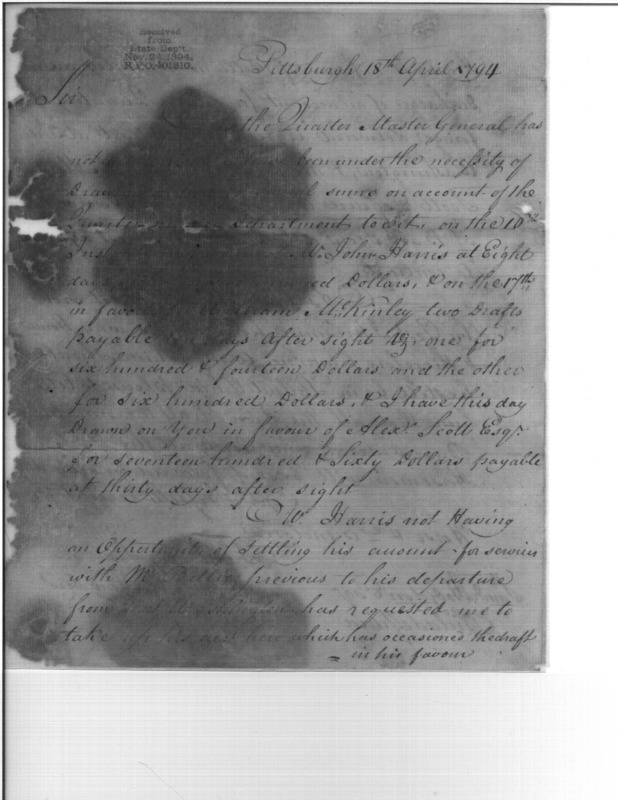 Received
from
State Dep't.
Nov. 24, 1894.
R.P.O. 401810.
Pittsburgh 18th April 1794
Sir
the Quarter Master General has
not been under the necessity of
Draw sums on account of the
Quarter Department to wit, on the 10th
Inst Mr. John Harris at Eight
days Dollars, & on the 17th
in favour McKinley two Drafts
payable days after sight Viz one for
six hundred & fourteen Dollars and the other
for six hundred Dollars, & I have this day
Drawn on You in favour of Alexr. Scott Esqr.
for seventeen hundred & Sixty Dollars payable
at thirty days after sight
Harris not Having
an Opportunity of settling his account for services
with Mr previous to his departure
from has requested me to
take up his acct here which has occasioned the draft
= in his favour